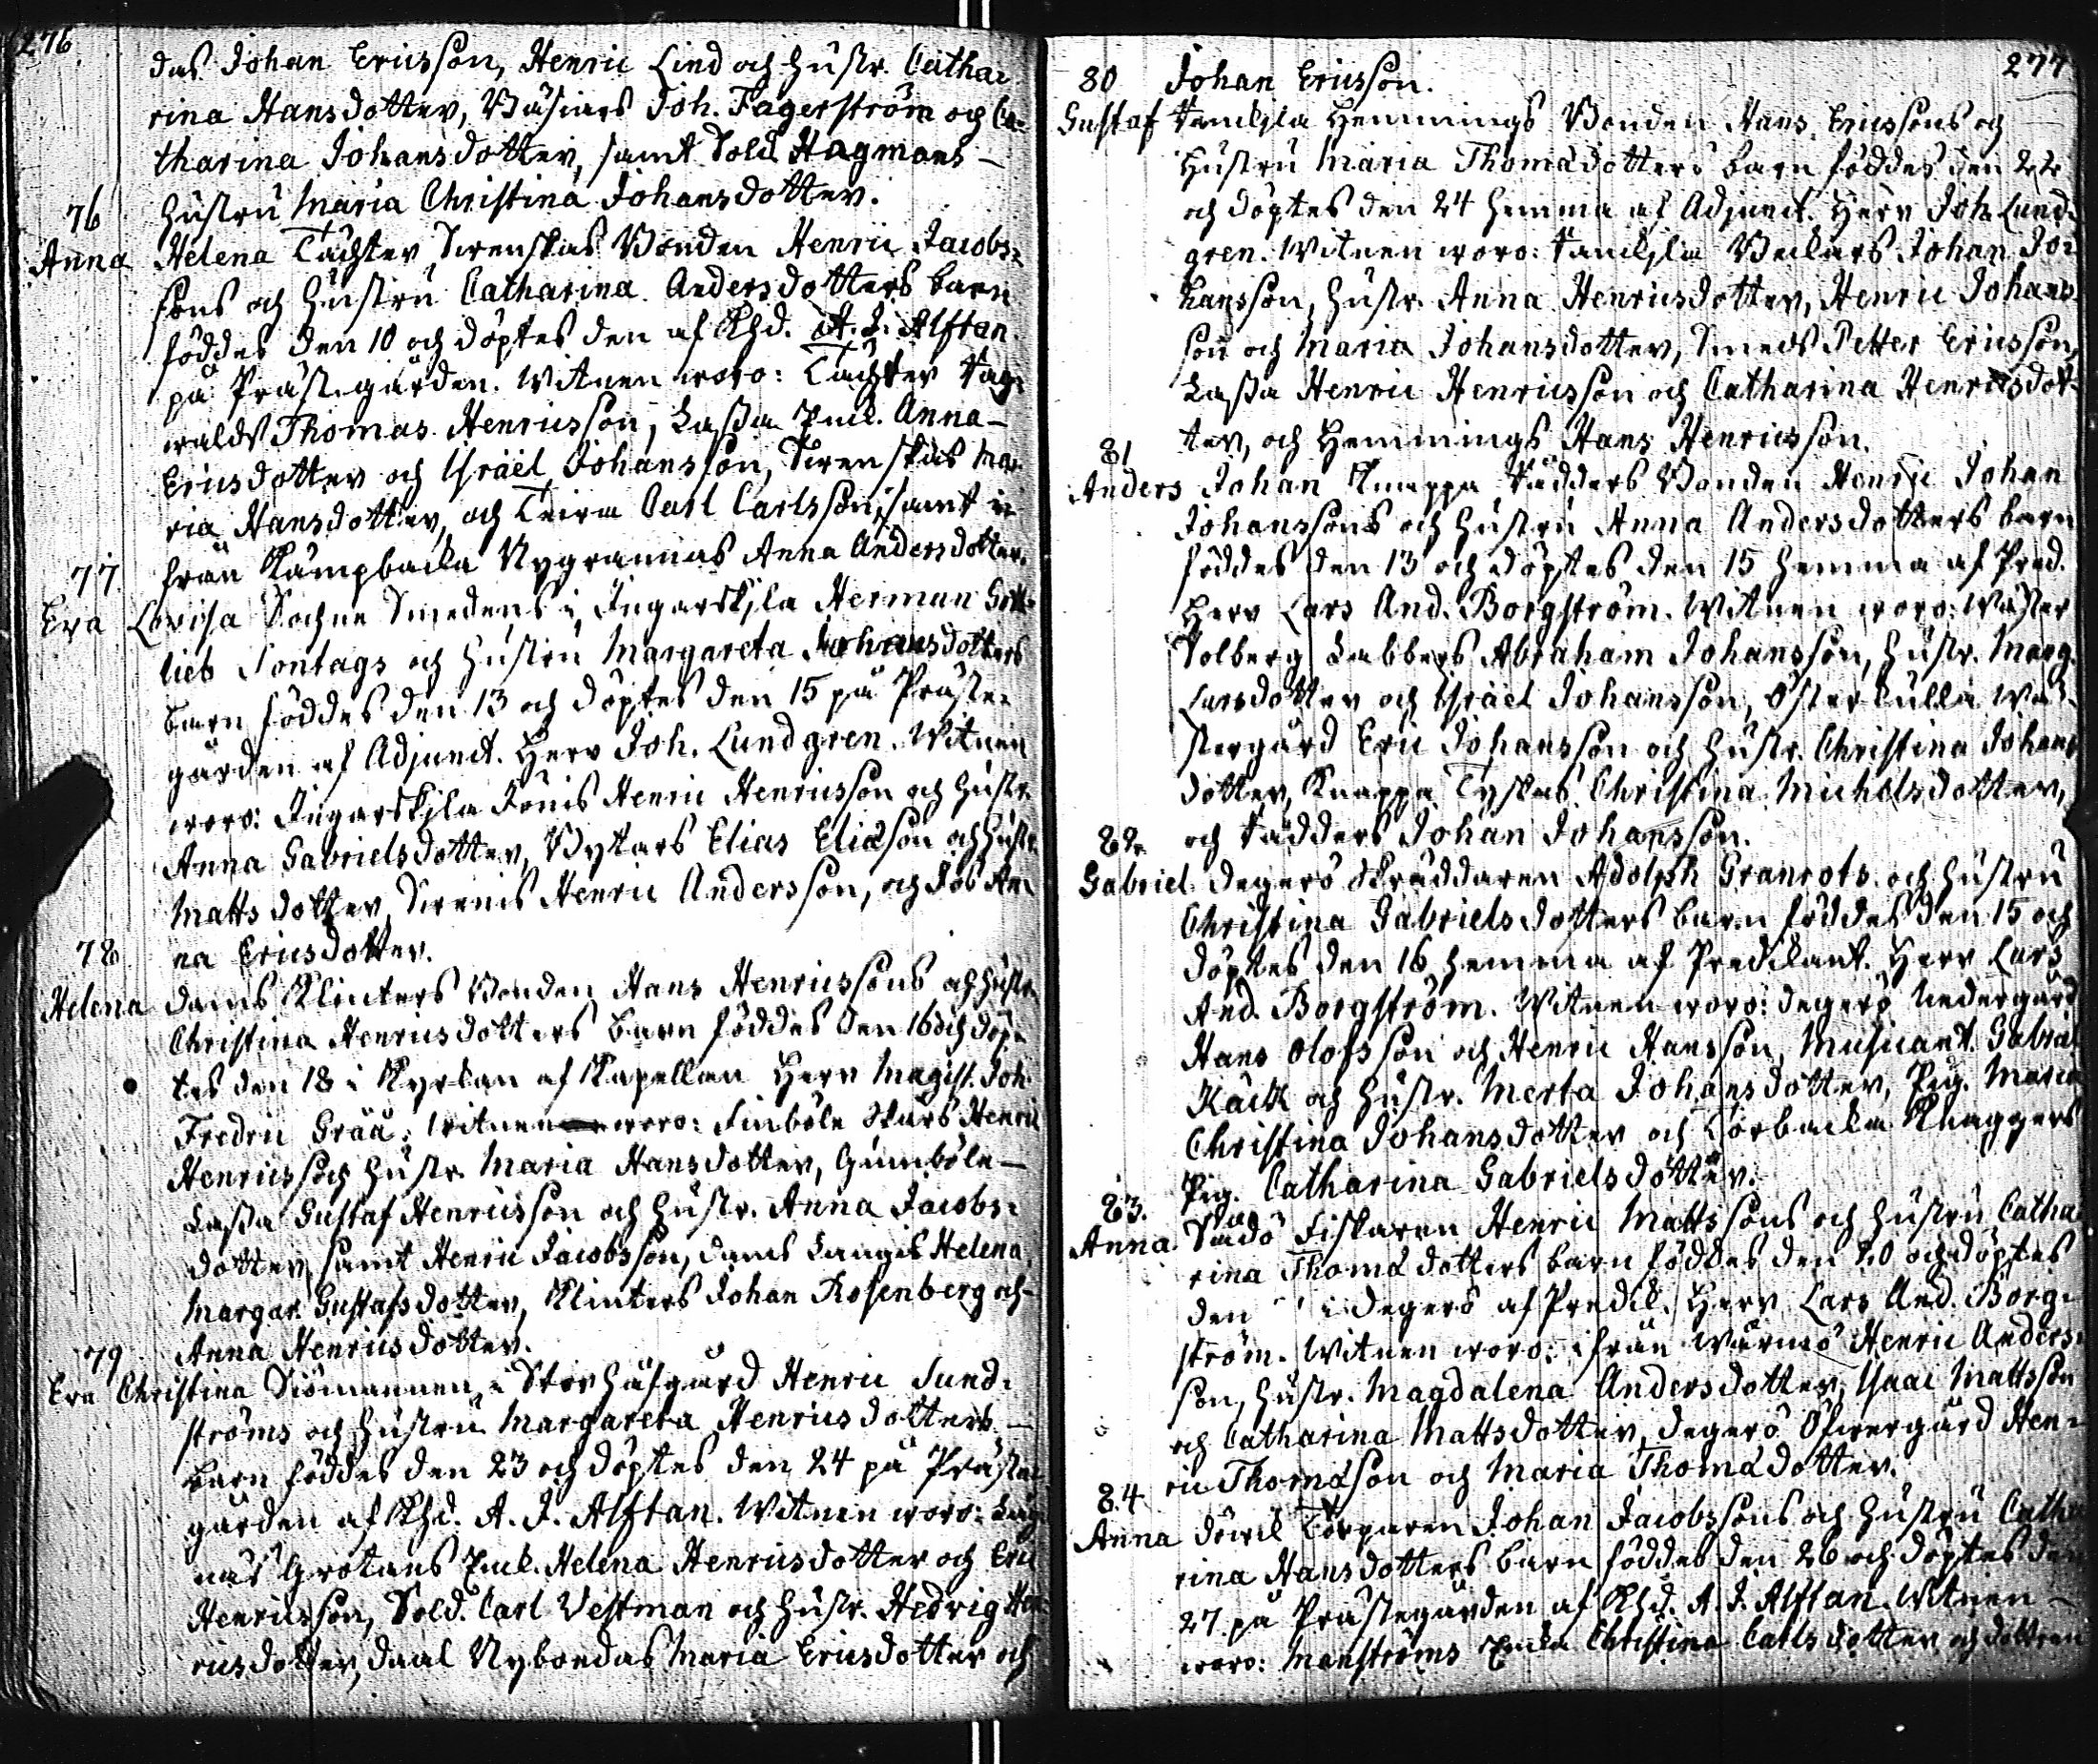 276.
das Johan Ericsson, Henric Lind och hustr. Catha-
rina Hansdotter, Joh. Fagerström och Ca-
tharina Johansdotter, samt Sold. Hagmans
hustru Maria Christina Johansdotter.
76
Anna Helena Täckter Svenskas Bonden Henric Jacobs-
sons och hustru Catharina Andersdotters barn
föddes den 10 och döptes den af Khd. A. J. Alftan
på Prästegården. Witnen woro: Täckter
Thomas Henricsson, Lassa Enck. Anna
Ericsdotter och Israël Johansson, Svenskas Ma-
ria Hansdotter, och Carl Carlsson, samt i
från Kämpbacka Nygrannas Anna Andersdotter.
77.
Eva Lovisa Sochne Smedens i Ingarskjla Herman Gott-
lieb Sontags och hustru Margareta Johansdotters
barn föddes den 13 och döptes den 15 på Präste-
gården af Adjunct. Herr Joh. Lundgren. Witnen
woro: Ingarskjla Jönis Henric Henricsson och hustr.
Anna Gabrielsdotter, Bytars Elias Eliason och hustr.
Mattsdotter, Henric Andersson, och An-
na Ericsdotter.
78
Helena Klinters Bonden Hans Henricssons och hustr.
Christina Henricsdotters barn föddes den 16 och döp-
tes den 18 i Kyrkan af Kapellan Herr Magist. Joh.
Fredric Grää. Witnen woro: Finböle Henric
Henricsson och hustr. Maria Hansdotter, Gumböle
Lassa Gustaf Henricsson och hustr. Anna Jacobs-
dotter, samt Henric Jacobsson, Helena
Margar. Gustafsdotter, Klinters Johan Rosenberg och
Anna Henricsdotter.
79
Eva Christina Siömannen i Storhäfgård Henric Sund-
ströms och hustru Margareta Henricsdotters
barn föddes den 23 och döptes den 24 på Präste-
gården af Khd. A. J. Alftan. Witnen woro:
Grotans Enck. Helena Henricsdotter och Eric
Henricsson, Sold. Carl Vestman och hustr. Hedvig Hen-
ricsdotter, Nybondas Maria Ericsdotter och
277
Johan Ericsson.
80
Gustaf Hemmings Bonden Hans Ericssons och
hustru Maria Thomädotters barn föddes den 22
och döptes den 24 hemma af Adjunct. Herr Joh. Lund-
gren. Witnen woro: Johan Jo-
hansson, hustr. Anna Henricsdotter, Henric Johans-
son och Maria Johansdotter, Smeds Petter Ericsson,
Lassa Henric Henricsson och Catharina Henricsdot-
ter, och Hemmings Hans Henricsson.
81
Anders Johan Knappa Fadders Bonden Henric Johan
Johanssons och hustru Anna Andersdotters barn
föddes den 13 och döptes den 15 hemma af Pred.
Herr Lars And. Borgström. Witnen woro: Wäster
Solberg Labbers Abraham Johansson, hustr. Marg.
Larsdotter och Israël Johansson, Österkulla Wä-
stergård Eric Johansson och hustr. Christina Johans-
dotter, Knappa Tyskas Christina Michelsdotter,
och Fadders Johan Johansson.
82.
Gabriel Degerö Skräddaren Adolph Granrots och hustru
Christina Gabrielsdotters barn föddes den 15 och
döptes den 16 hemma af Predikant. Herr Lars
And. Borgström. Witnen woro: Degerö Nedergård
Hans Olofsson och Henric Hansson, Musicant. Gabriel
Käck och hustr. Merta Johansdotter, Pig. Maria
Christina Johansdotter och Torbacka Klaggers
Pig. Catharina Gabrielsdotter.
83.
Anna Sandö Fiskaren Henric Mattssons och hustru Catha-
rina Thomädotters barn föddes den 20 och döptes
den i Degerö af Predik. Herr Lars And. Borg-
ström. Witnen woro: ifrån Wärmö Henric Anders-
son, hustr. Magdalena Andersdotter, Isaac Mattsson
och Catharina Mattsdotter, Degerö Öfwergård Hen-
ric Thomäson och Maria Thomädotter.
84
Anna Torparen Johan Jacobssons och hustru Catha-
rina Hansdotters barn föddes den 26 och döptes den
27 på Prästegården af Khd. A. J. Alftan. Witnen
woro: Manströms Enka Christina Carlsdotter och dottren